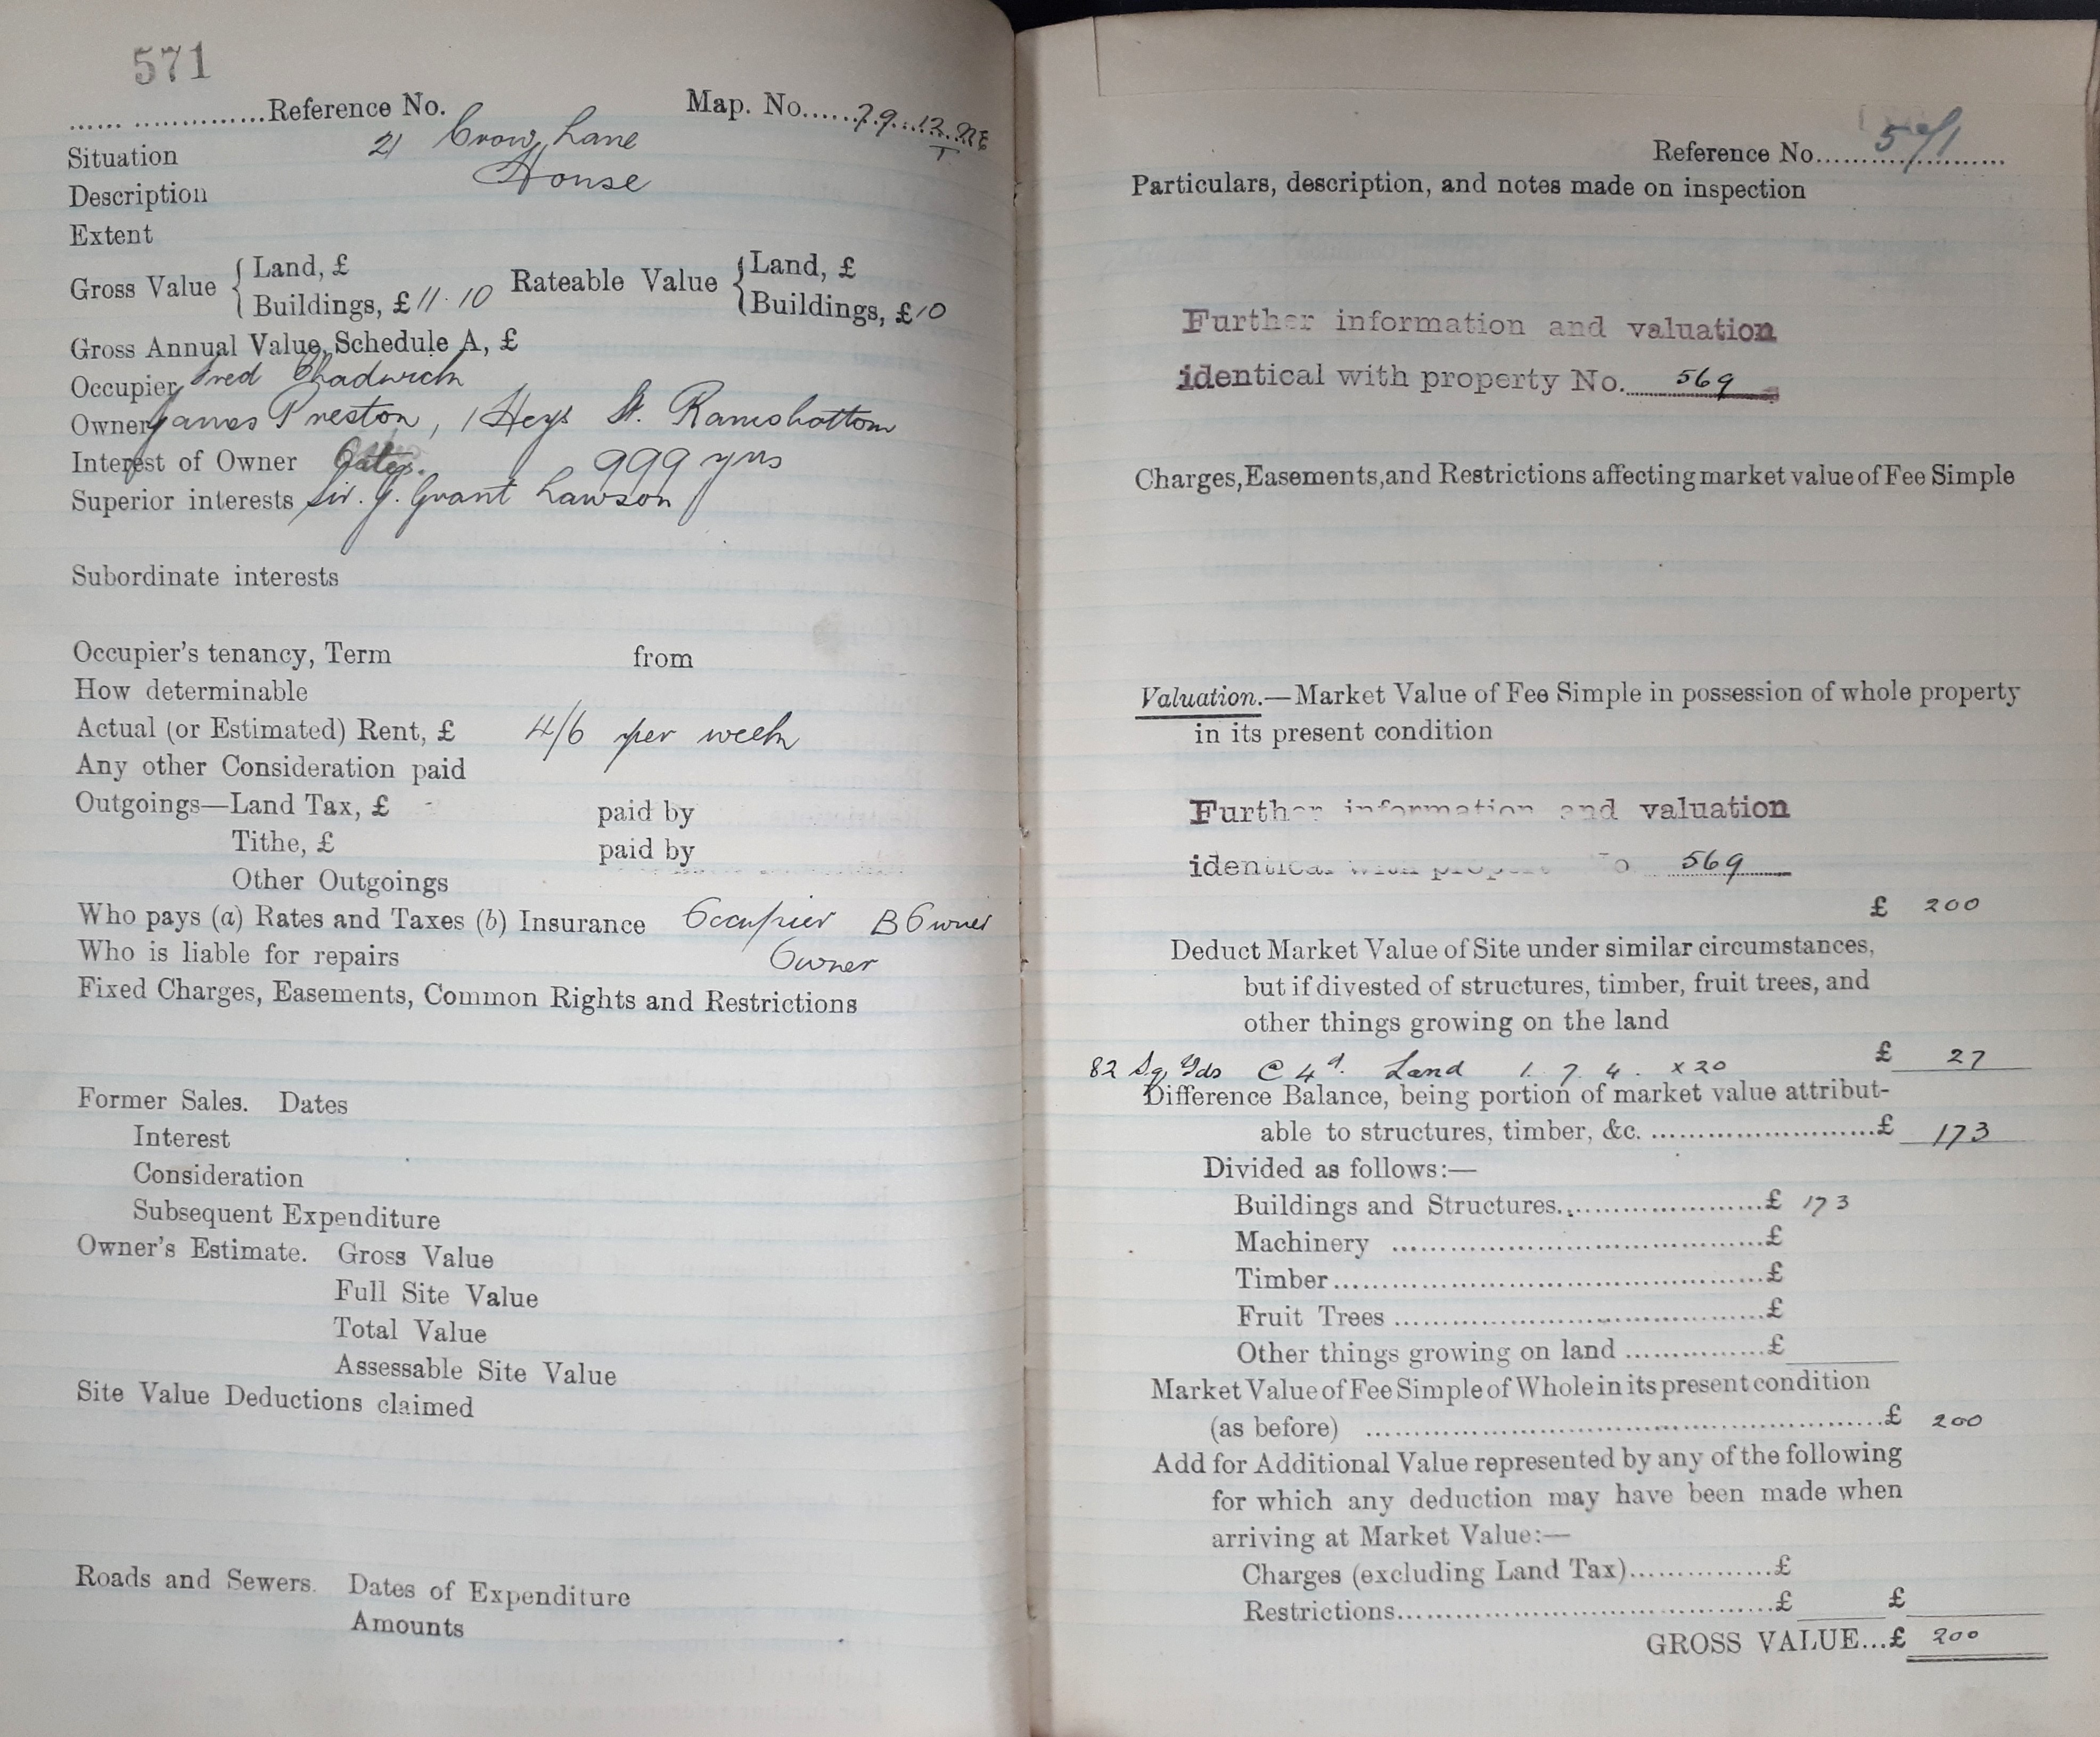 571
...... ..............Reference No. Map. No......79. 12. NE
Situation 21 Crow Lane
Description House
Extent
Gross Value { Land, £ Rateable Value { Land, £
Buildings, £ 11. 10 Buildings, £10
Gross Annual Value, Schedule A, £
Occupier Fred Chadwick
Owner James Preston, 1 Heys St. Ramsbottom
Interest of Owner 999 yrs
Superior interests Sir. J. Grant Lawson
Subordinate interests
Occupier's tenancy, Term from
How determinable
Actual (or Estimated) Rent, £ 4/6 per week
Any other Consideration paid
Outgoings—Land Tax, £ paid by
Tithe, £ paid by
Other Outgoings
Who pays (a) Rates and Taxes (b) Insurance Occupier B Owner
Who is liable for repairs Owner
Fixed Charges, Easements, Common Rights and Restrictions
Former Sales. Dates
Interest
Consideration
Subsequent Expenditure
Owner's Estimate. Gross Value
Full Site Value
Total Value
Assessable Site Value
Site Value Deductions claimed
Roads and Sewers. Dates of Expenditure
Amounts
Reference No......571......
Particulars, description, and notes made on inspection
Further information and valuation
identical with property No. 569
Charges, Easements, and Restrictions affecting market value of Fee Simple
Valuation.—Market Value of Fee Simple in possession of whole property
in its present condition
Further information and valuation
identical with property No. 569
£ 200
Deduct Market Value of Site under similar circumstances,
but if divested of structures, timber, fruit trees, and
other things growing on the land
82 Sq Yds @ 4d. Land 1. 7. 4. x 20 £ 27
Difference Balance, being portion of market value attribut-
able to structures, timber, &c. ........................£ 173
Divided as follows:—
Buildings and Structures......................£ 173
Machinery ......................................£
Timber............................................£
Fruit Trees ......................................£
Other things growing on land ...............£
Market Value of Fee Simple of Whole in its present condition
(as before) ......................................................£ 200
Add for Additional Value represented by any of the following
for which any deduction may have been made when
arriving at Market Value:—
Charges (excluding Land Tax)...............£
Restrictions......................................£ £
GROSS VALUE...£ 200